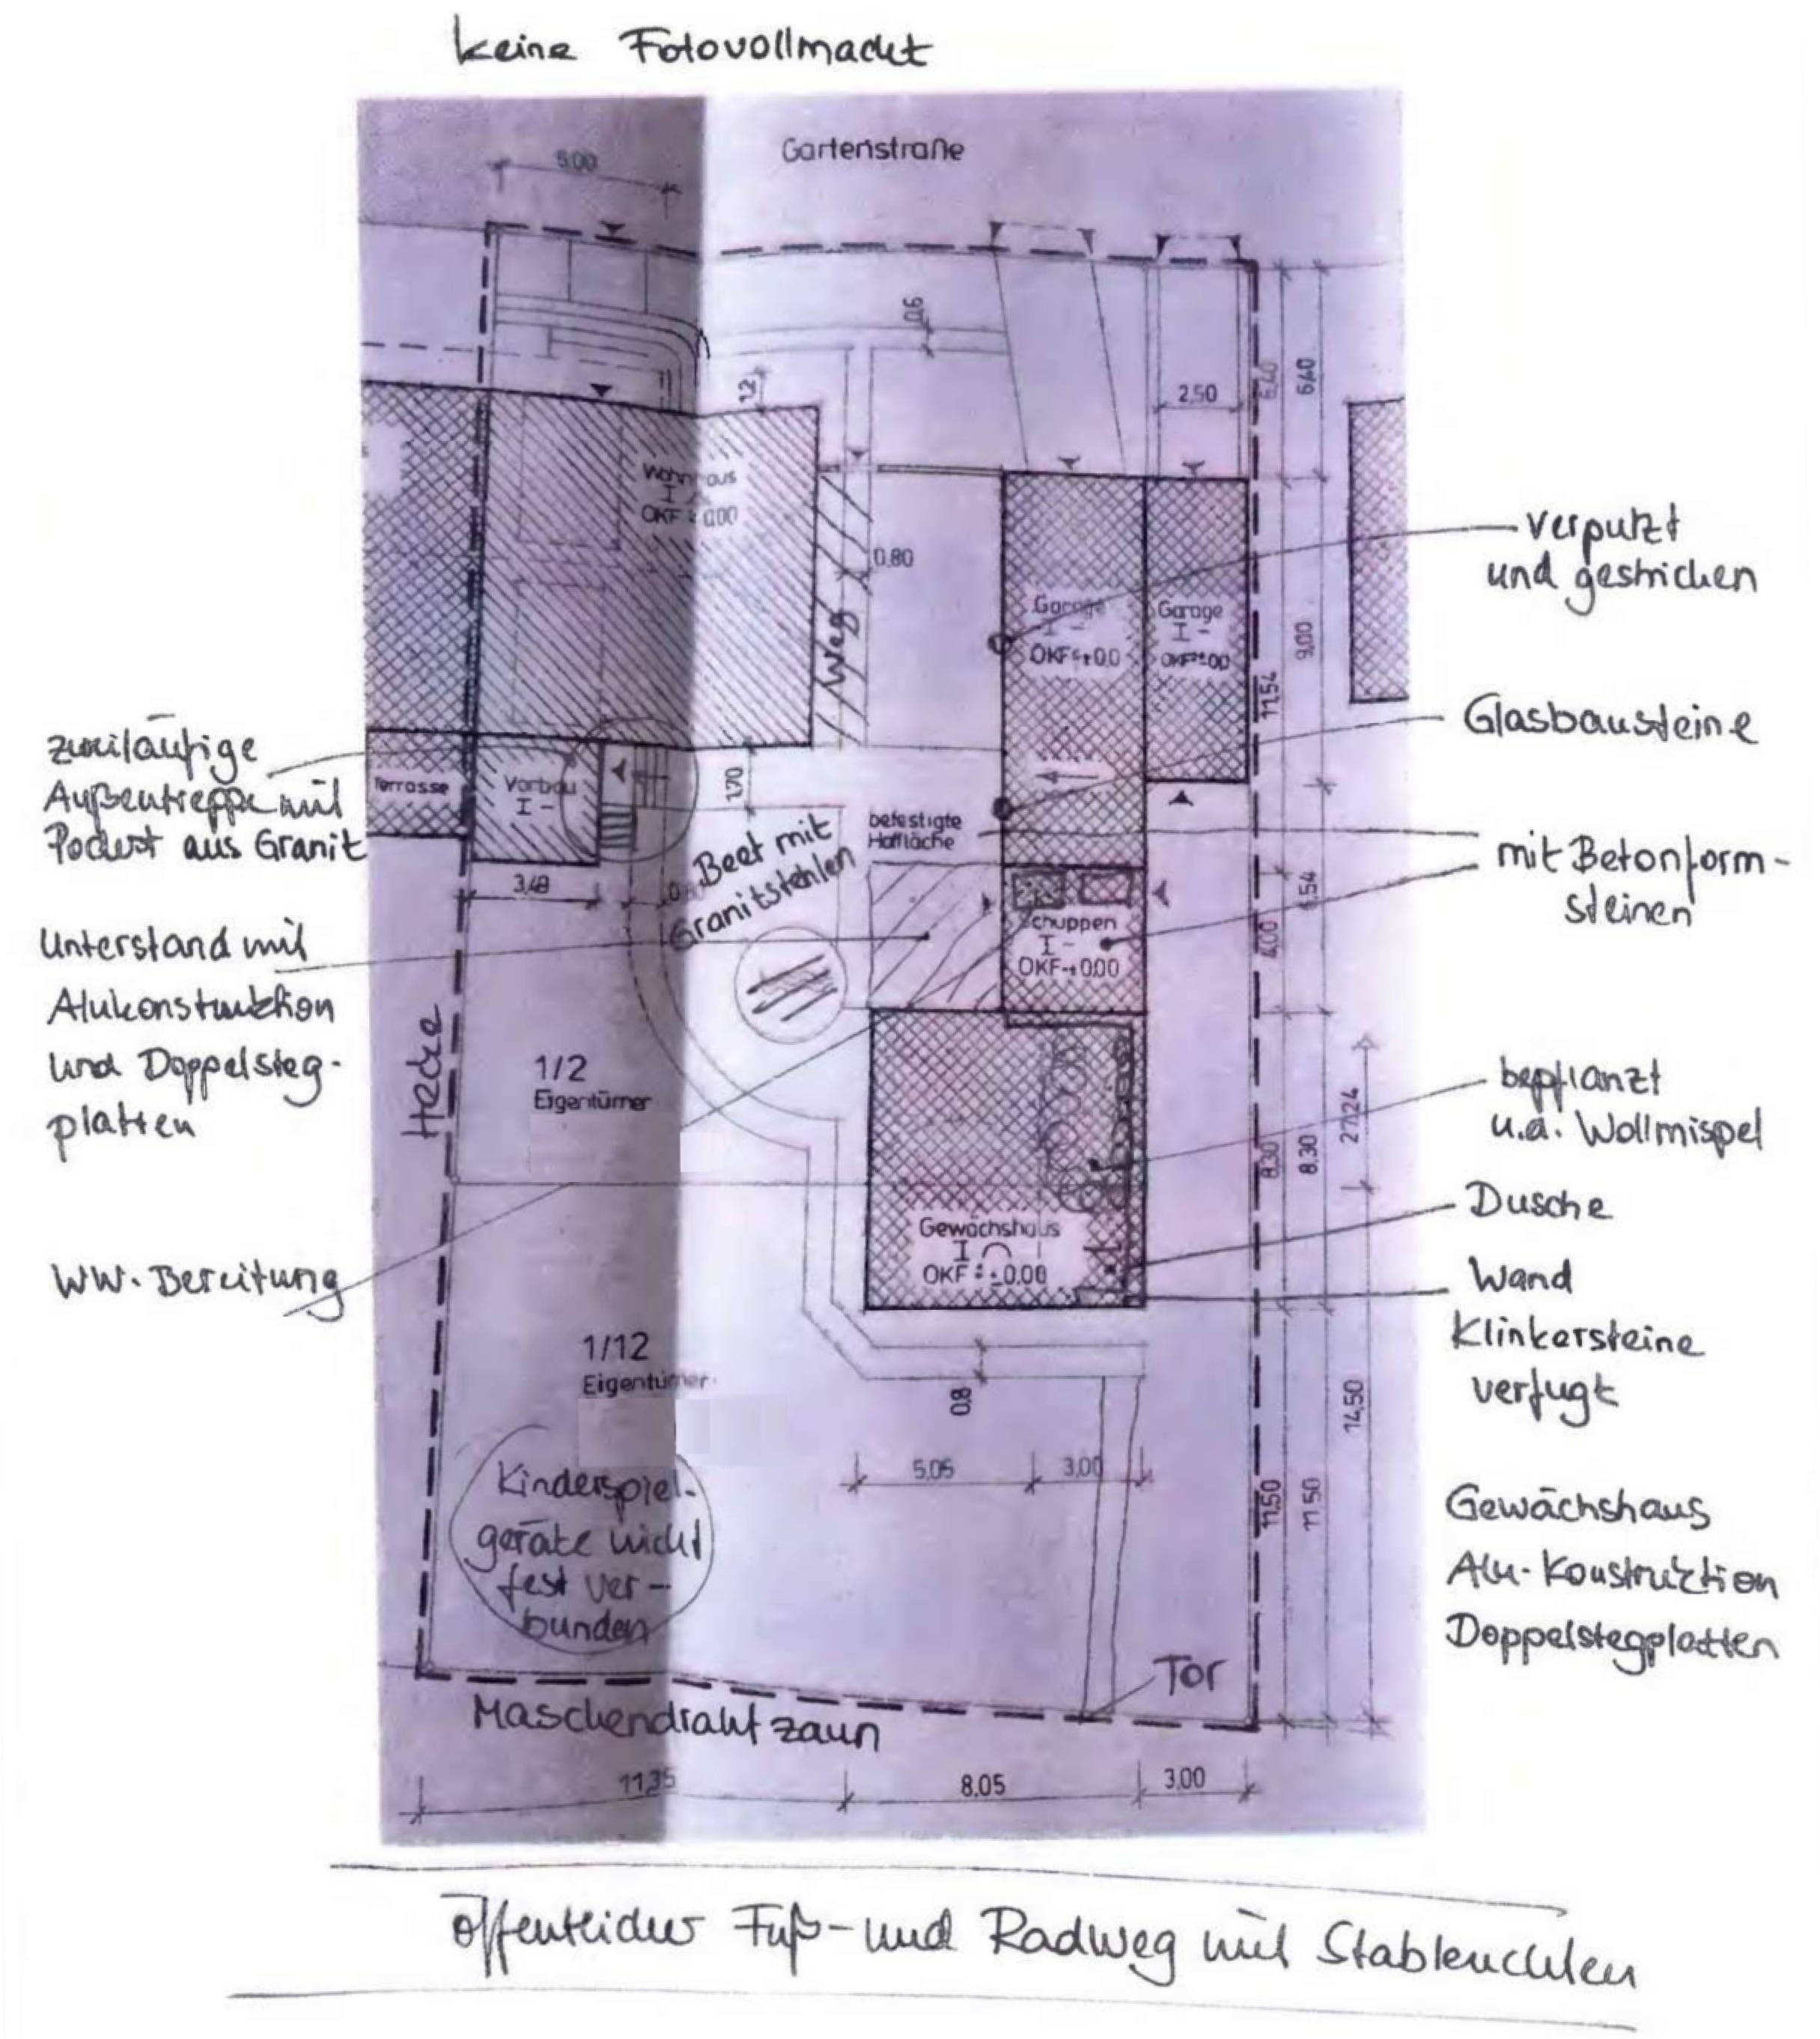 keine Fotovollmacht
Gartenstraße
5,00
0,6
1,2
2,50
6,40
6,40
Wohnhaus
I
OKF ± 0,00
0,80
Weg
verputzt
und gestrichen
Garage
I -
OKF ± 0,0
Garage
I -
OKF ± 0,0
9,00
11,54
Glasbausteine
zweiläufige
Außentreppe mit
Podest aus Granit
Terrasse
Vorbau
I -
1,70
befestigte
Hoffläche
Beet mit
Granitstehlen
mit Betonform-
steinen
3,48
Schuppen
I -
OKF ± 0,00
4,00
Unterstand mit
Alukonstruktion
und Doppelsteg-
platten
Hecke
1/2
Eigentümer
bepflanzt
u.a. Wollmispel
27,24
8,30
8,30
Dusche
Gewächshaus
I
OKF : ± 0,00
WW. Bereitung
Wand
Klinkersteine
verfugt
1/12
Eigentümer
0,8
14,50
5,05
3,00
11,50
11,50
Kinderspiel-
geräte nicht
fest ver-
bunden
Gewächshaus
Alu-Konstruktion
Doppelstegplatten
Tor
Maschendrahtzaun
11,35
8,05
3,00
öffentlicher Fuß- und Radweg mit Stableuchten